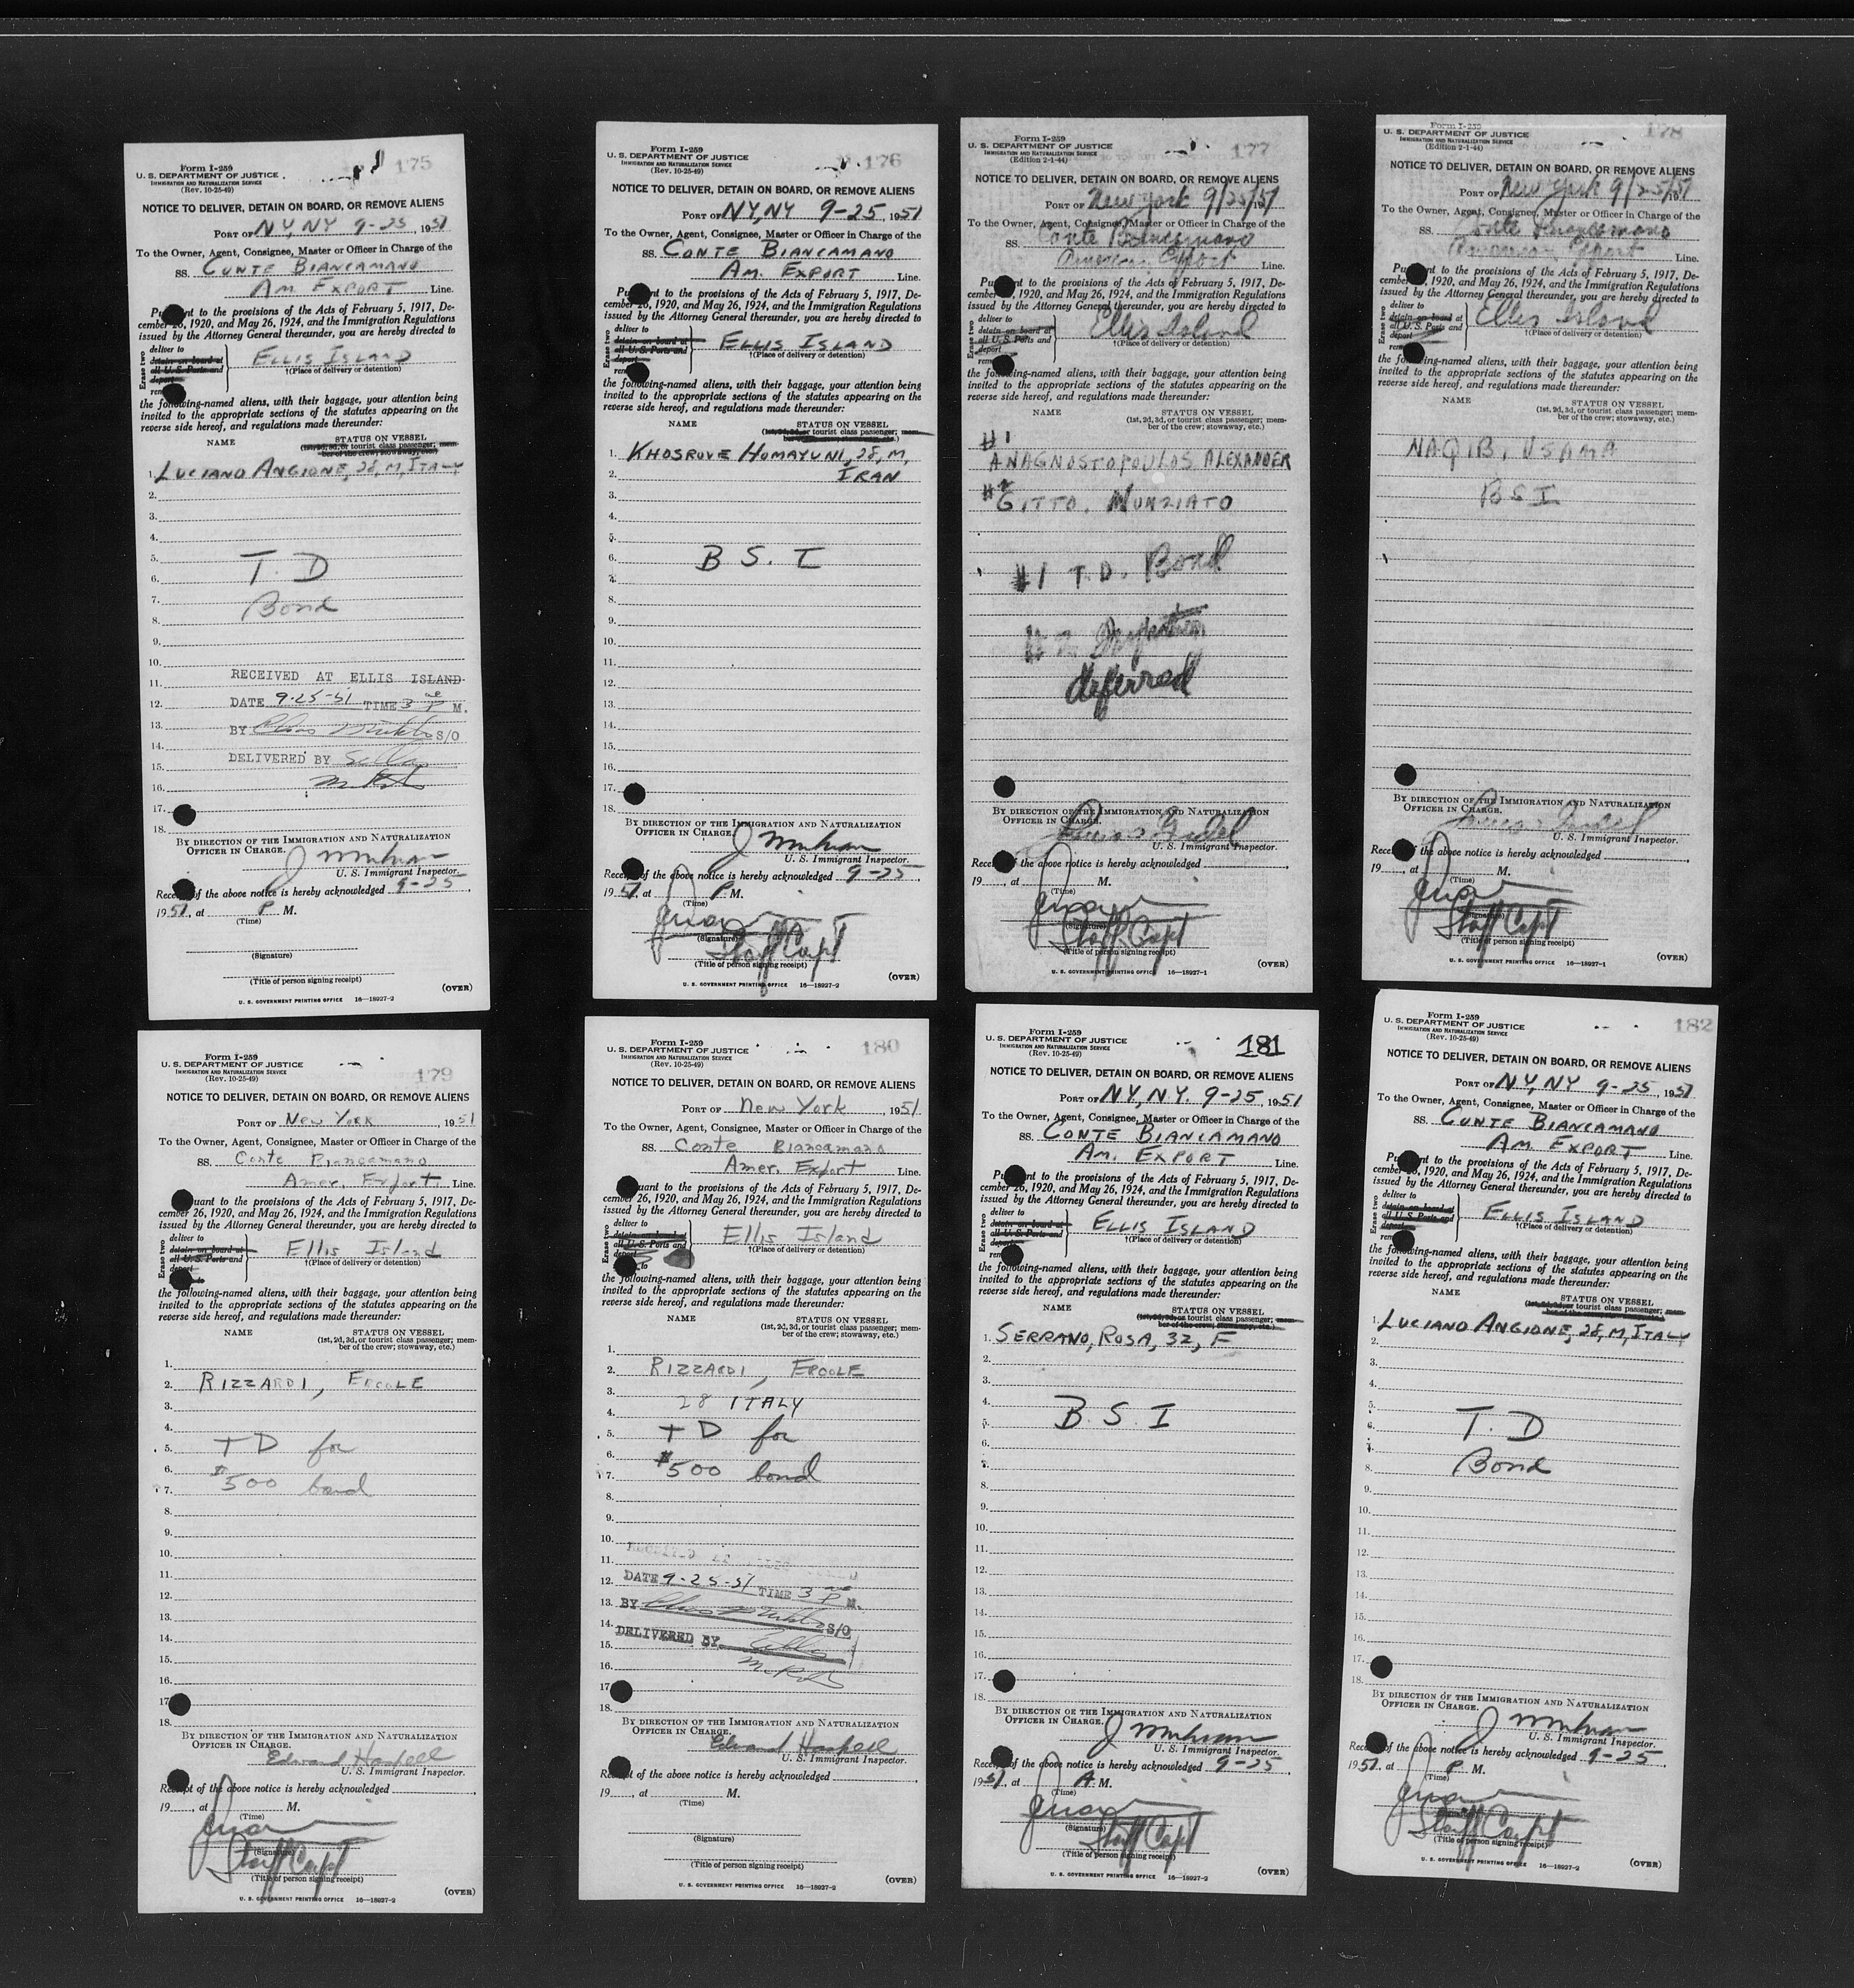 175
Form I-259
U. S. DEPARTMENT OF JUSTICE
IMMIGRATION AND NATURALIZATION SERVICE
(Rev. 10-25-49)
NOTICE TO DELIVER, DETAIN ON BOARD, OR REMOVE ALIENS
PORT OF NY, NY 9-25, 1951
To the Owner, Agent, Consignee, Master or Officer in Charge of the
SS. CONTE BIANCAMANO
AM EXPORT Line.
nt to the provisions of the Acts of February 5, 1917, De-
cember 1920, and May 26, 1924, and the Immigration Regulations
issued by the Attorney General thereunder, you are hereby directed to
Erase two
deliver to
detain on board at
all U. S. Ports and
deport
ELLIS ISLAND
†(Place of delivery or detention)
the following-named aliens, with their baggage, your attention being
invited to the appropriate sections of the statutes appearing on the
reverse side hereof, and regulations made thereunder:
NAME STATUS ON VESSEL
(1st, 2d, 3d, or tourist class passenger; mem-
ber of the crew; stowaway, etc.)
1. LUCIANO ANGIONE, 28, M, ITALY
2.
3.
4.
5. T. D
6.
7. Bond
8.
9.
10.
11. RECEIVED AT ELLIS ISLAND
12. DATE 9-25-51 TIME 3 P M.
13. BY S/O
14.
15. DELIVERED BY
16.
17.
18.
BY DIRECTION OF THE IMMIGRATION AND NATURALIZATION
OFFICER IN CHARGE.
U. S. Immigrant Inspector.
of the above notice is hereby acknowledged 9-25,
1951, at P M.
(Time)
(Signature)
(Title of person signing receipt)
(OVER)
U. S. GOVERNMENT PRINTING OFFICE 16—18927-2
176
Form I-259
U. S. DEPARTMENT OF JUSTICE
IMMIGRATION AND NATURALIZATION SERVICE
(Rev. 10-25-49)
NOTICE TO DELIVER, DETAIN ON BOARD, OR REMOVE ALIENS
PORT OF NY, NY 9-25, 1951
To the Owner, Agent, Consignee, Master or Officer in Charge of the
SS. CONTE BIANCAMANO
AM. EXPORT Line.
nt to the provisions of the Acts of February 5, 1917, De-
cember 1920, and May 26, 1924, and the Immigration Regulations
issued by the Attorney General thereunder, you are hereby directed to
Erase two
deliver to
detain on board at
all U. S. Ports and
deport
ELLIS ISLAND
†(Place of delivery or detention)
the following-named aliens, with their baggage, your attention being
invited to the appropriate sections of the statutes appearing on the
reverse side hereof, and regulations made thereunder:
NAME STATUS ON VESSEL
(1st, 2d, 3d, or tourist class passenger; mem-
ber of the crew; stowaway, etc.)
1. KHOSROVE HOMAYUNI, 28, M,
2. IRAN
3.
4.
5.
6. B S. I
7.
8.
9.
10.
11.
12.
13.
14.
15.
16.
17.
18.
BY DIRECTION OF THE IMMIGRATION AND NATURALIZATION
OFFICER IN CHARGE.
U. S. Immigrant Inspector.
of the above notice is hereby acknowledged 9-25,
1951, at P M.
(Time)
(Signature)
Staff Capt
(Title of person signing receipt)
(OVER)
U. S. GOVERNMENT PRINTING OFFICE 16—18927-2
177
Form I-259
U. S. DEPARTMENT OF JUSTICE
IMMIGRATION AND NATURALIZATION SERVICE
(Edition 2-1-44)
NOTICE TO DELIVER, DETAIN ON BOARD, OR REMOVE ALIENS
PORT OF New York 9/25/51
To the Owner, Agent, Consignee, Master or Officer in Charge of the
SS. Conte Biancamano
American Export Line.
nt to the provisions of the Acts of February 5, 1917, De-
cember 1920, and May 26, 1924, and the Immigration Regulations
issued by the Attorney General thereunder, you are hereby directed to
Erase two
deliver to
detain on board at
all U. S. Ports and
deport
Ellis Island
†(Place of delivery or detention)
the following-named aliens, with their baggage, your attention being
invited to the appropriate sections of the statutes appearing on the
reverse side hereof, and regulations made thereunder:
NAME STATUS ON VESSEL
(1st, 2d, 3d, or tourist class passenger; mem-
ber of the crew; stowaway, etc.)
#1
ANAGNOSTOPOULOS ALEXANDER
#2
GITTO. NUNZIATO
#1 T. D. Bond
deferred
BY DIRECTION OF THE IMMIGRATION AND NATURALIZATION
OFFICER IN CHARGE.
U. S. Immigrant Inspector.
of the above notice is hereby acknowledged
19 , at M.
(Time)
(Signature)
Staff Capt
(Title of person signing receipt)
(OVER)
U. S. GOVERNMENT PRINTING OFFICE 16—18927-1
178
Form I-259
U. S. DEPARTMENT OF JUSTICE
IMMIGRATION AND NATURALIZATION SERVICE
(Edition 2-1-44)
NOTICE TO DELIVER, DETAIN ON BOARD, OR REMOVE ALIENS
PORT OF New York 9/25/51
To the Owner, Agent, Consignee, Master or Officer in Charge of the
SS. Conte Biancamano
American Export Line.
nt to the provisions of the Acts of February 5, 1917, De-
cember 1920, and May 26, 1924, and the Immigration Regulations
issued by the Attorney General thereunder, you are hereby directed to
Erase two
deliver to
detain on board at
all U. S. Ports and
deport
Ellis Island
†(Place of delivery or detention)
the following-named aliens, with their baggage, your attention being
invited to the appropriate sections of the statutes appearing on the
reverse side hereof, and regulations made thereunder:
NAME STATUS ON VESSEL
(1st, 2d, 3d, or tourist class passenger; mem-
ber of the crew; stowaway, etc.)
NAQIB, USAMA
B S I
BY DIRECTION OF THE IMMIGRATION AND NATURALIZATION
OFFICER IN CHARGE.
U. S. Immigrant Inspector.
of the above notice is hereby acknowledged
19 , at M.
(Time)
(Signature)
Staff Capt
(Title of person signing receipt)
(OVER)
U. S. GOVERNMENT PRINTING OFFICE 16—18927-1
179
Form I-259
U. S. DEPARTMENT OF JUSTICE
IMMIGRATION AND NATURALIZATION SERVICE
(Rev. 10-25-49)
NOTICE TO DELIVER, DETAIN ON BOARD, OR REMOVE ALIENS
PORT OF New York, 1951
To the Owner, Agent, Consignee, Master or Officer in Charge of the
SS. Conte Biancamano
Amer. Export Line.
uant to the provisions of the Acts of February 5, 1917, De-
cember 26, 1920, and May 26, 1924, and the Immigration Regulations
issued by the Attorney General thereunder, you are hereby directed to
Erase two
deliver to
detain on board at
all U. S. Ports and
deport
Ellis Island
†(Place of delivery or detention)
the following-named aliens, with their baggage, your attention being
invited to the appropriate sections of the statutes appearing on the
reverse side hereof, and regulations made thereunder:
NAME STATUS ON VESSEL
(1st, 2d, 3d, or tourist class passenger; mem-
ber of the crew; stowaway, etc.)
1.
2. RIZZARDI, ERCOLE
3.
4.
5. T D for
6.
7. $500 bond
8.
9.
10.
11.
12.
13.
14.
15.
16.
17
18.
BY DIRECTION OF THE IMMIGRATION AND NATURALIZATION
OFFICER IN CHARGE.
Edward Haspell
U. S. Immigrant Inspector.
of the above notice is hereby acknowledged
19 , at M.
(Time)
(Signature)
Staff Capt
(Title of person signing receipt)
(OVER)
U. S. GOVERNMENT PRINTING OFFICE 16—18927-2
180
Form I-259
U. S. DEPARTMENT OF JUSTICE
IMMIGRATION AND NATURALIZATION SERVICE
(Rev. 10-25-49)
NOTICE TO DELIVER, DETAIN ON BOARD, OR REMOVE ALIENS
PORT OF New York, 1951
To the Owner, Agent, Consignee, Master or Officer in Charge of the
SS. Conte Biancamano
Amer. Export Line.
uant to the provisions of the Acts of February 5, 1917, De-
cember 26, 1920, and May 26, 1924, and the Immigration Regulations
issued by the Attorney General thereunder, you are hereby directed to
Erase two
deliver to
detain on board at
all U. S. Ports and
deport
Ellis Island
†(Place of delivery or detention)
the following-named aliens, with their baggage, your attention being
invited to the appropriate sections of the statutes appearing on the
reverse side hereof, and regulations made thereunder:
NAME STATUS ON VESSEL
(1st, 2d, 3d, or tourist class passenger; mem-
ber of the crew; stowaway, etc.)
1.
2. RIZZARDI, ERCOLE
3.
4. 28 ITALY
5. T D for
6.
7. $500 bond
8.
9.
10.
11. RECEIVED AT ELLIS ISLAND
12. DATE 9-25-51 TIME 3 P M.
13. BY
14. S/O
15. DELIVERED BY
16.
17
18.
BY DIRECTION OF THE IMMIGRATION AND NATURALIZATION
OFFICER IN CHARGE.
Edward Haspell
U. S. Immigrant Inspector.
of the above notice is hereby acknowledged
19 , at M.
(Time)
(Signature)
(Title of person signing receipt)
(OVER)
U. S. GOVERNMENT PRINTING OFFICE 16—18927-2
181
Form I-259
U. S. DEPARTMENT OF JUSTICE
IMMIGRATION AND NATURALIZATION SERVICE
(Rev. 10-25-49)
NOTICE TO DELIVER, DETAIN ON BOARD, OR REMOVE ALIENS
PORT OF NY, NY 9-25, 1951
To the Owner, Agent, Consignee, Master or Officer in Charge of the
SS. CONTE BIANCAMANO
AM. EXPORT Line.
nt to the provisions of the Acts of February 5, 1917, De-
cember 1920, and May 26, 1924, and the Immigration Regulations
issued by the Attorney General thereunder, you are hereby directed to
Erase two
deliver to
detain on board at
all U. S. Ports and
deport
ELLIS ISLAND
†(Place of delivery or detention)
the following-named aliens, with their baggage, your attention being
invited to the appropriate sections of the statutes appearing on the
reverse side hereof, and regulations made thereunder:
NAME STATUS ON VESSEL
(1st, 2d, 3d, or tourist class passenger; mem-
ber of the crew; stowaway, etc.)
1. SERRANO, ROSA, 32, F
2.
3.
4.
5. B. S. I
6.
7.
8.
9.
10.
11.
12.
13.
14.
15.
16.
17.
18.
BY DIRECTION OF THE IMMIGRATION AND NATURALIZATION
OFFICER IN CHARGE.
U. S. Immigrant Inspector.
of the above notice is hereby acknowledged 9-25,
1951, at A M.
(Time)
(Signature)
Staff Capt
(Title of person signing receipt)
(OVER)
U. S. GOVERNMENT PRINTING OFFICE 16—18927-2
182
Form I-259
U. S. DEPARTMENT OF JUSTICE
IMMIGRATION AND NATURALIZATION SERVICE
(Rev. 10-25-49)
NOTICE TO DELIVER, DETAIN ON BOARD, OR REMOVE ALIENS
PORT OF NY, NY 9-25, 1951
To the Owner, Agent, Consignee, Master or Officer in Charge of the
SS. CONTE BIANCAMANO
AM. EXPORT Line.
nt to the provisions of the Acts of February 5, 1917, De-
cember 1920, and May 26, 1924, and the Immigration Regulations
issued by the Attorney General thereunder, you are hereby directed to
Erase two
deliver to
detain on board at
all U. S. Ports and
deport
ELLIS ISLAND
†(Place of delivery or detention)
the following-named aliens, with their baggage, your attention being
invited to the appropriate sections of the statutes appearing on the
reverse side hereof, and regulations made thereunder:
NAME STATUS ON VESSEL
(1st, 2d, 3d, or tourist class passenger; mem-
ber of the crew; stowaway, etc.)
1. LUCIANO ANGIONE, 28, M, ITALY
2.
3.
4.
5.
6. T. D
7.
8. Bond
9.
10.
11.
12.
13.
14.
15.
16.
17.
18.
BY DIRECTION OF THE IMMIGRATION AND NATURALIZATION
OFFICER IN CHARGE.
U. S. Immigrant Inspector.
of the above notice is hereby acknowledged 9-25,
1951, at P M.
(Time)
(Signature)
Staff Capt
(Title of person signing receipt)
(OVER)
U. S. GOVERNMENT PRINTING OFFICE 16—18927-2